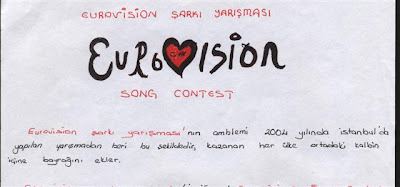 EUROVISION ŞARKI YARIŞMASI
EUROVISION
SONG CONTEST
Eurovision şarkı yarışması'nın amblemi 2004 yılında istanbul'da
yapılan yarışmadan beri bu şekildedir, kazanan her ülke ortadaki kalbin
içine bayrağını ekler.